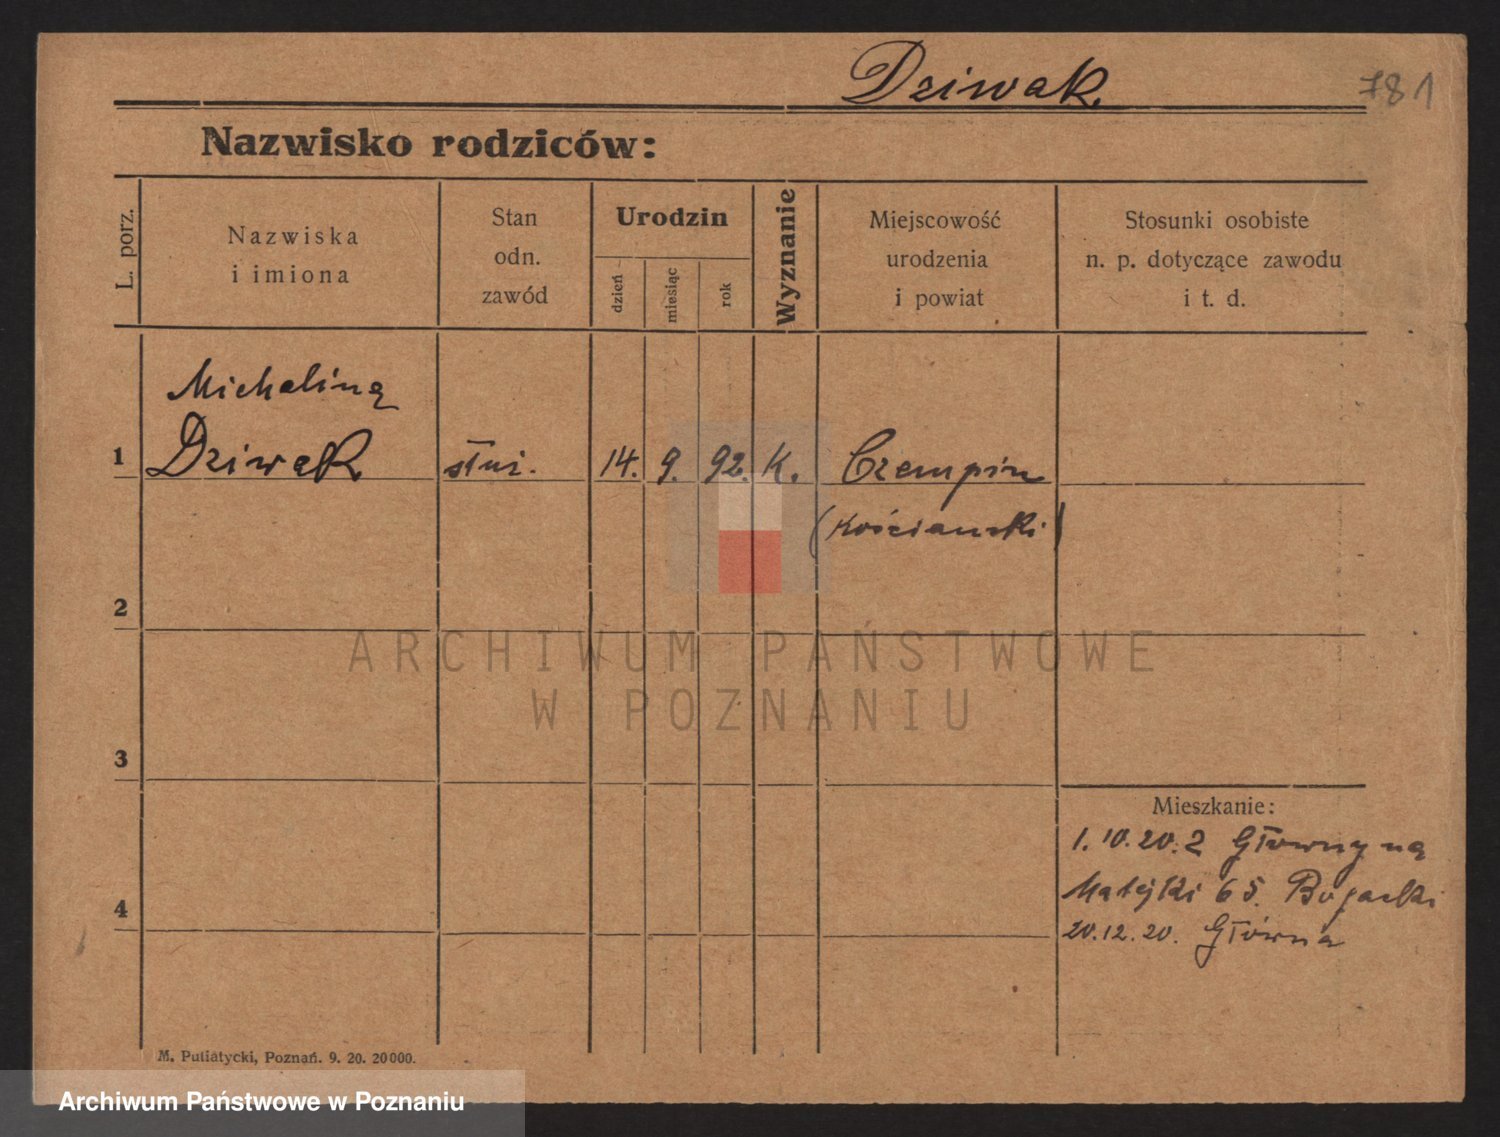 Dziwak.
781
Nazwisko rodziców:
L. porz.
Nazwiska
i imiona
Stan
odn.
zawód
Urodzin
dzień
miesiąc
rok
Wyznanie
Miejscowość
urodzenia
i powiat
Stosunki osobiste
n. p. dotyczące zawodu
i t. d.
Michalina
1 Dziwak służ. 14. 9. 92. K. Czempin
(Kościański)
2
3
Mieszkanie:
1. 10. 20. z Głowny na
Matejki 65. Bogacki
4
20. 12. 20. Główna
M. Putiatycki, Poznań. 9. 20. 20000.
ARCHIWUM PAŃSTWOWE
W POZNANIU
Archiwum Państwowe w Poznaniu